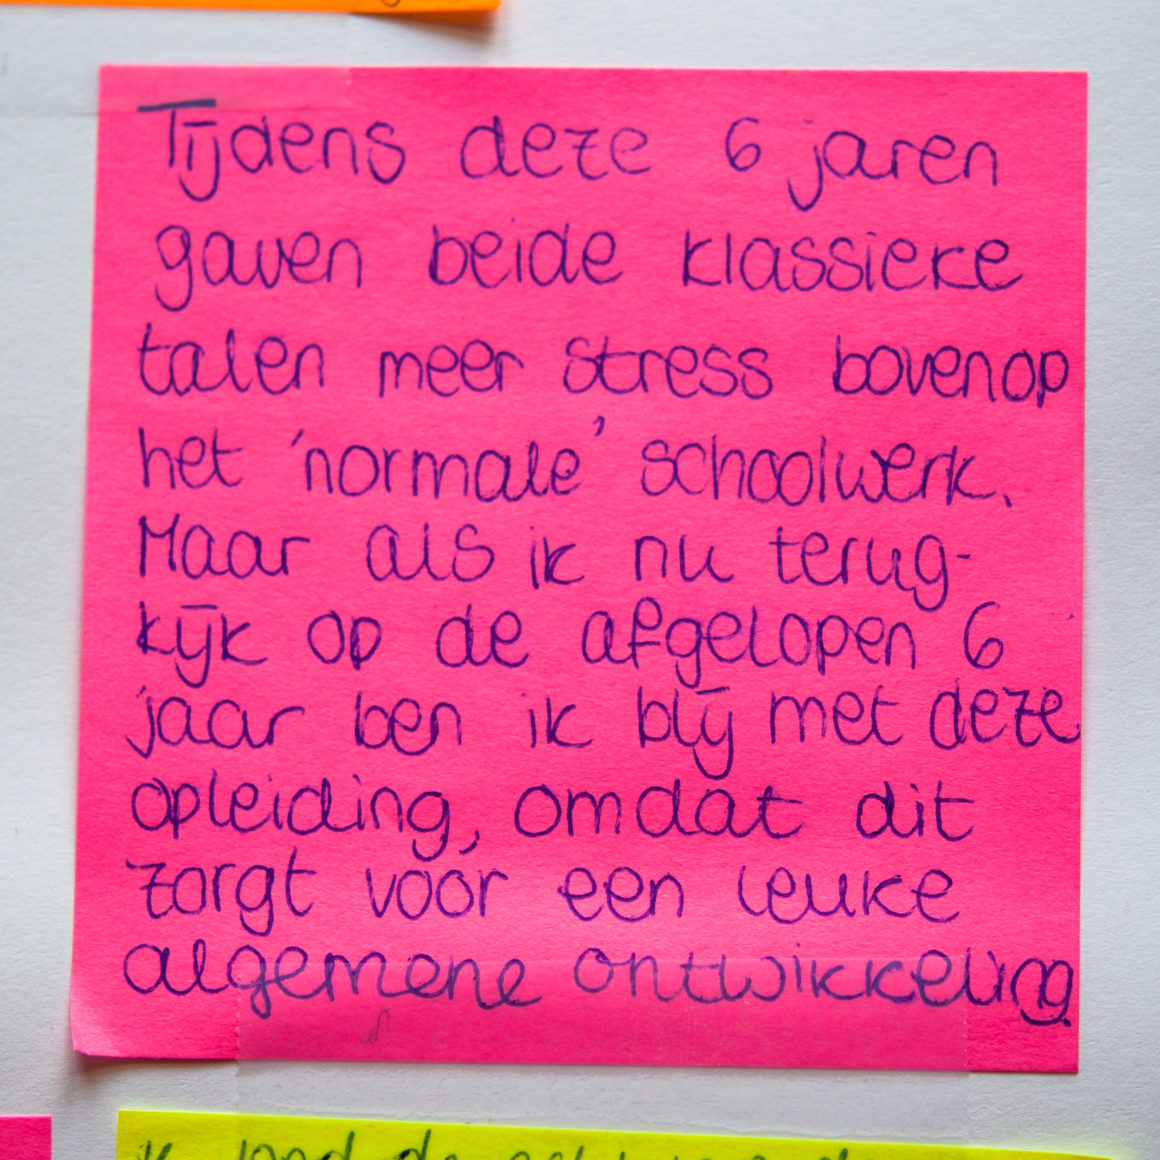 Tijdens deze 6 jaren
gaven beide klassieke
talen meer stress bovenop
het 'normale' schoolwerk.
Maar als ik nu terug-
kijk op de afgelopen 6
jaar ben ik blij met deze
opleiding, omdat dit
zorgt vóór een leuke
algemene ontwikkeling.
ik vond de